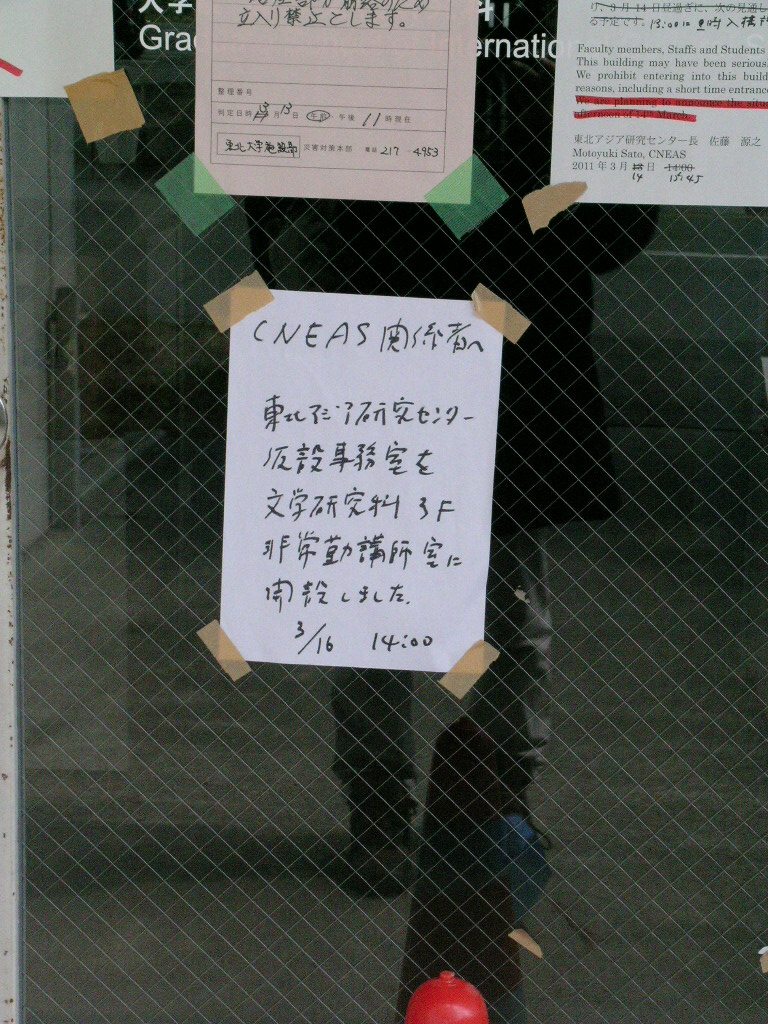 大学
科
Gra
Internatio
立入り禁止とします。
整理番号
判定日時 3月13日 午前・午後 11時現在
東北大学施設部 災害対策本部 電話 217-4953
り、3月14日昼過ぎに、次の見通し
る予定です。 13:00に
Faculty members, Staffs and Students
This building may have been serious
We prohibit entering into this build
reasons, including a short time entrance
We are planning to announce the situ
afternoon of 14th March.
東北アジア研究センター長 佐藤 源之
Motoyuki Sato, CNEAS
2011年3月 日 14:00
14 15:45
CNEAS 関係者へ
東北アジア研究センター
仮設事務室を
文学研究科 3F
非常勤講師室に
開設しました.
3/16 14:00